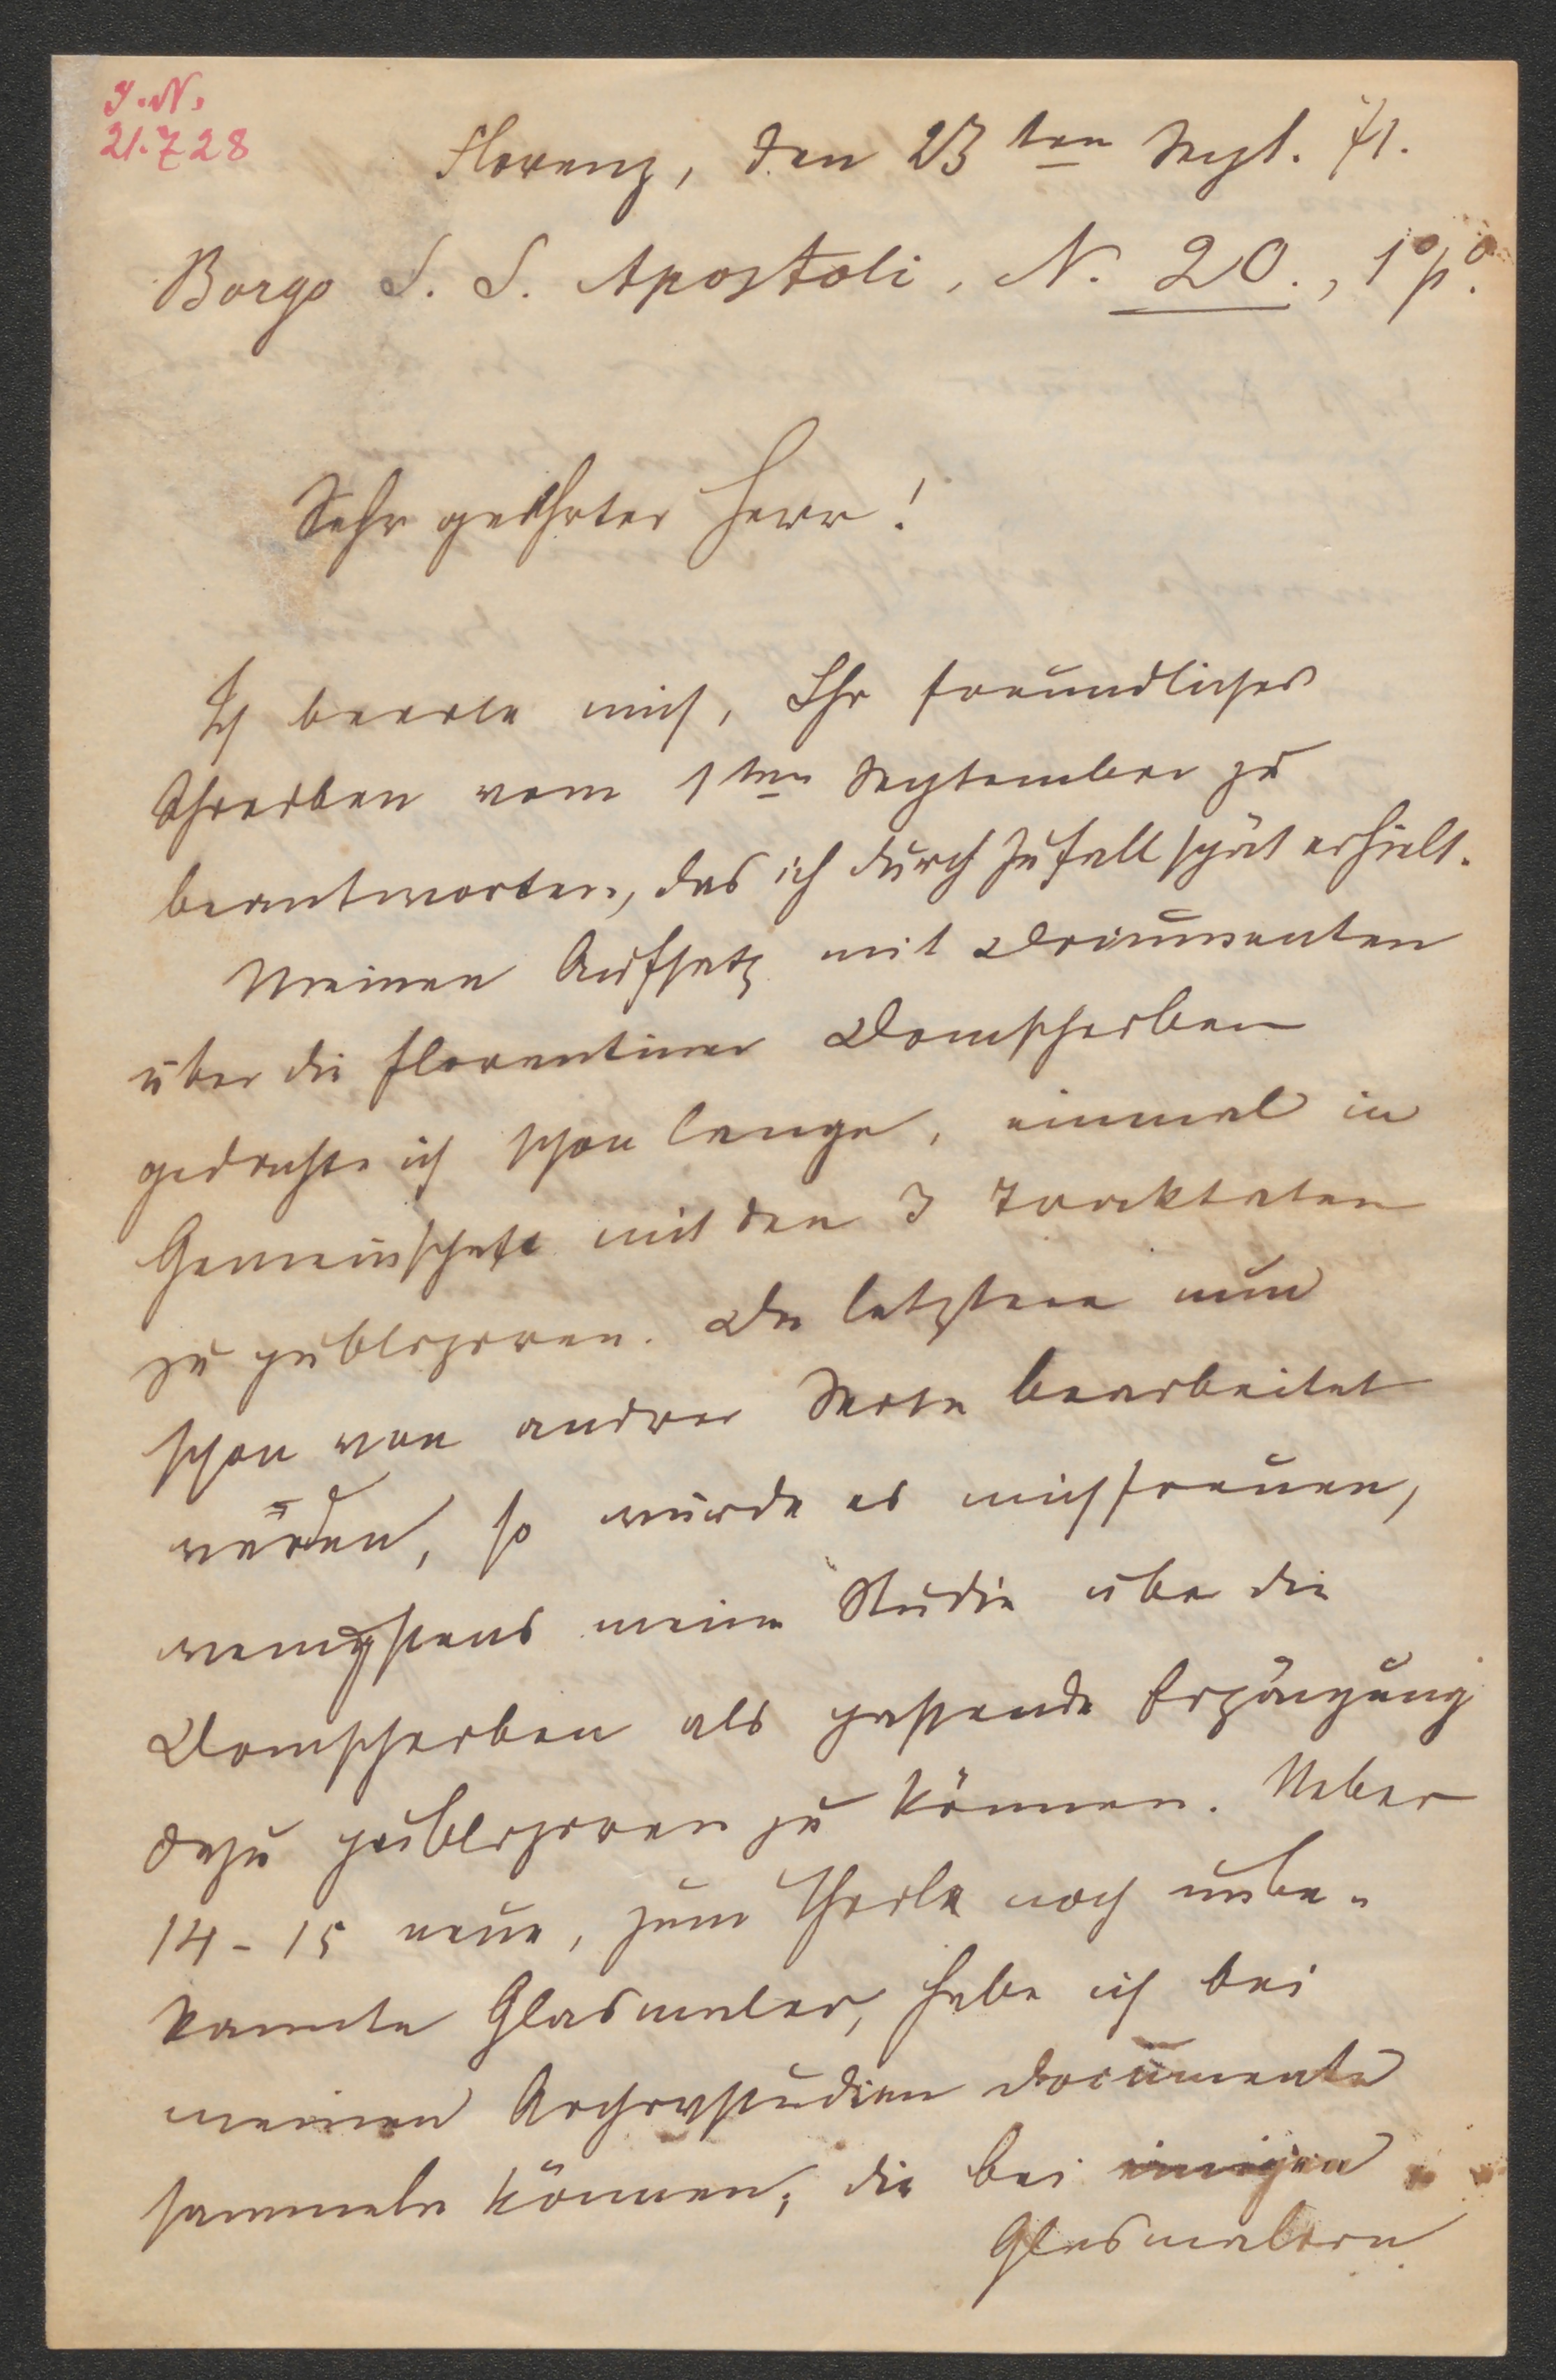 I. N.
21.728
Florenz, den 23ten Sept. 71.
Borgo S. S. Apostoli, N. 20., 1o po.
Sehr geehrter Herr!
Ich beeile mich, Ihr freundliches
Schreiben vom 1ten September zu
beantworten, das ich durch Zufall spät erhielt.
Meinen Aufsatz mit Documenten
über die florentiner Domscheiben
gedachte ich schon lange, einmal in
Gemeinschaft mit den 3 Tracktaten
zu publiziren. Da letztere nun
schon von andrer Seite bearbeitet
werden, so würde es mich freuen,
wenigstens meine Studie über die
Domscheiben als passende Ergänzung
dazu publiziren zu können. Ueber
14-15 neue, zum Theile noch unbe-
kannte Glasmaler, habe ich bei
meinen Archivstudien Documente
sammeln können, die bei einigen
Glasmalern